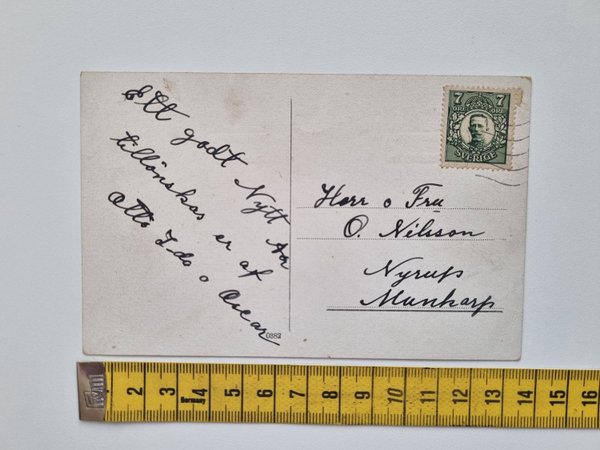 Ett godt Nytt År
tillönskas er af
Otto Ida o Oscar
0382
7 7
ÖRE ÖRE
SVERIGE
Herr o Fru
O. Nilsson
Nyrup
Munkarp
1 2 3 4 5 6 7 8 9 10 11 12 13 14 15 16
Germany